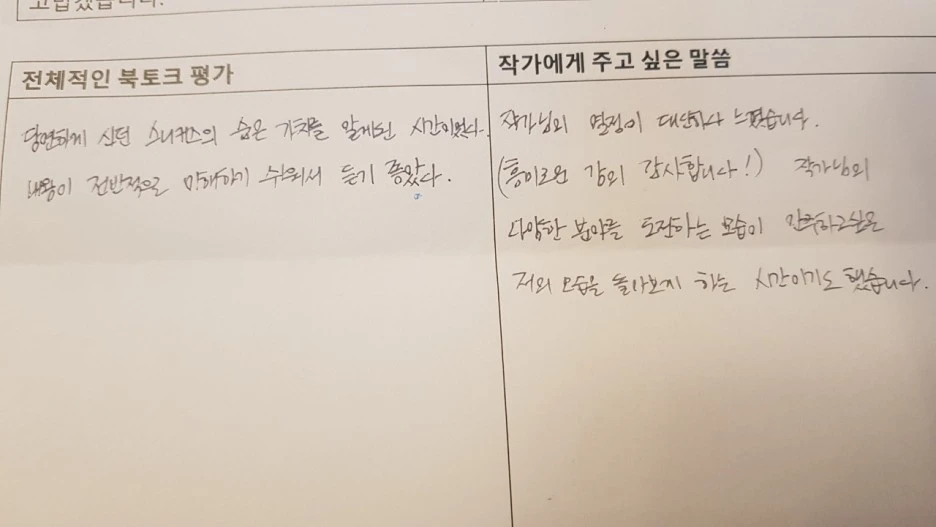 고맙겠습니다.
전체적인 북토크 평가
당연하게 신던 스니커즈의 숨은 가치를 알게된 시간이었다.
내용이 전반적으로 이해하기 쉬워서 듣기 좋았다.
작가에게 주고 싶은 말씀
작가님의 열정이 대단하다 느꼈습니다.
(흥미로운 강의 감사합니다!) 작가님의
다양한 분야를 도전하는 모습이 안주하고싶은
저의 모습을 돌아보게 하는 시간이기도 했습니다.